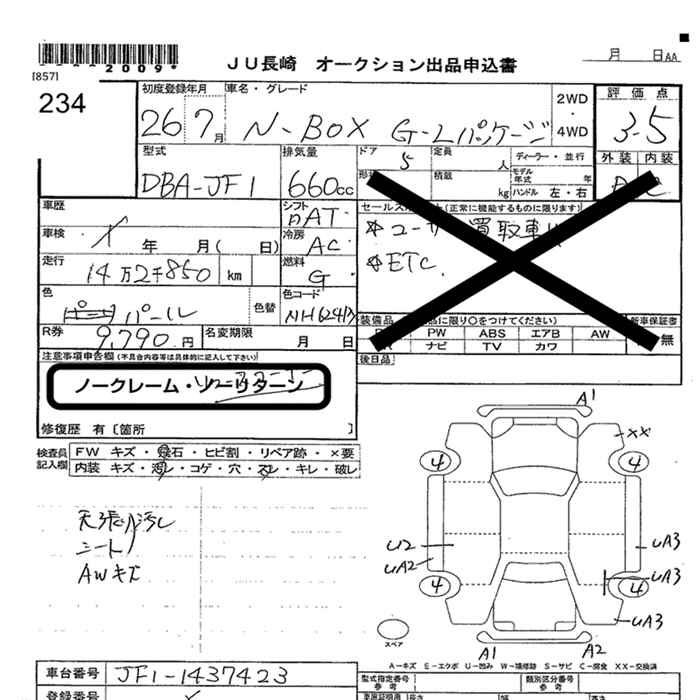 月 日AA
[857]
2009*
JU長崎 オークション出品申込書
234
初度登録年月
26 7月
車名・グレード
N-BOX G-Lパッケージ
2WD
・
4WD
評価点
3.5
外装 内装
型式
DBA-JF1
排気量
660cc
ドア
5
定員
人
ディーラー・並行
積載
kg
モデル年式
年
ハンドル 左・右
車歴
シフト
AT
(正常に機能するものに限ります)
車検
年 月( 日)
冷房
AC
買取車
走行
14万2千850 km
燃料
G
ETC
色
パール
色替
色コード
R券
9,790円
名変期限
月 日
装備品
に限り○をつけてください)
新車保証書
PW ABS エアB AW
ナビ TV カワ
無
注意事項申告欄(不具合内容等は具体的に記入して下さい)
後日品
ノークレーム・ノーリターン
修復歴 有〔箇所 〕
検査員記入欄
FW キズ・飛石・ヒビ割・リペア跡・×要
内装 キズ・汚レ・コゲ・穴・スレ・キレ・破レ
天張り汚レ
シート〃
AWキズ
A1
XX
4
4
U2
UA2
UA3
UA3
4
4
UA3
スペア
A1
A2
A-キズ E-エクボ U-凹み W-補修跡 S-サビ C-腐食 XX-交換済
車台番号
JF1-1437423
型式指定番号
参考
類別区分番号
参考
登録番号